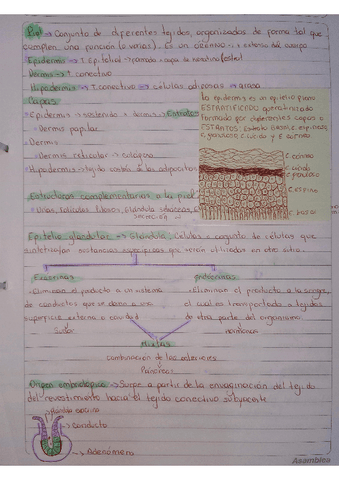 Piel → Conjunto de diferentes tejidos, organizados de forma tal que
cumplen una función (o varias). Es un órgano externo del cuerpo
Epidermis → T. Epitelial →
Dermis → T. conectivo
Hipodermis → T. conectivo → células adiposas → grasa
Capas
• Epidermis → sostenida x dermis → Estratos
• Dermis papilar
• Dermis
• Dermis reticular → colágeno
• Hipodermis → tejido
La epidermis es un epitelio plano
ESTRATIFICADO queratinizado
formado por diferentes capas o
ESTRATOS: Estrato Basal, E. espinoso,
E. granuloso, E. lucido y E. corneo.
E. corneo
E. lucido
E. ESPINO
E. basal
Estructuras complementarias a la piel
• Uñas, folículos pilosos, Glándula sebáceas,
Epitelio glandular → Glándula: Células o conjunto de células que
sintetizan sustancias específicas que serán utilizadas en otro sitio.
Exocrinas
Endocrinas
• Eliminan el producto a un sistema
de conductos que se abren a una
superficie externa o cavidad
Sudor
• Eliminan el producto a la sangre,
el cual es transportado a tejidos
de otra parte del organismo.
hormonas
Mixtas
combinación de las anteriores
Páncreas
Origen embriológico → Surge a partir de la envaginación del tejido
del revestimiento hacia el tejido conectivo subyacente
Conducto
Adenómero
Asamblea